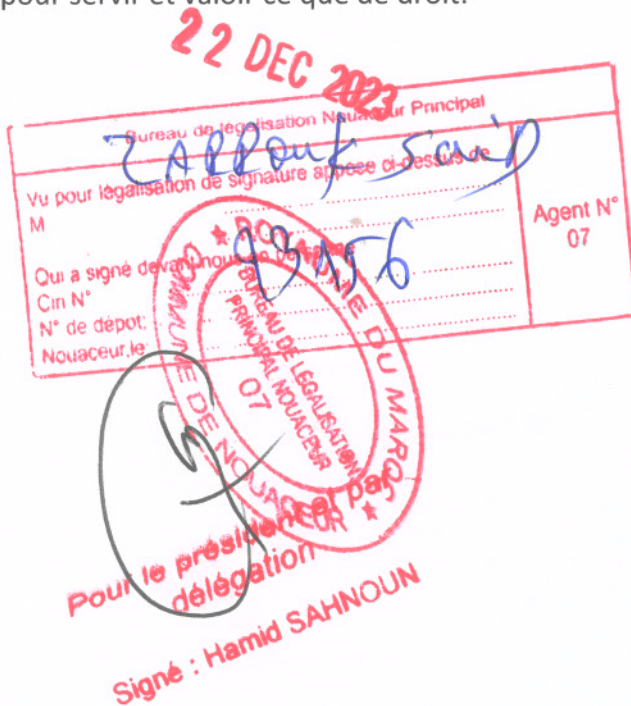 pour servir et valoir ce que de droit.
22 DEC 2023
Bureau de légalisation Nouaceur Principal
ZARROUK Said
Vu pour légalisation de signature appose ci-dessus de
M
Qui a signé devant nous
Cin N°
93156
N° de dépot:
Nouaceur,le
Agent N°
07
ROYAUME DU MAROC
COMMUNE DE NOUACEUR
BUREAU DE LÉGALISATION
PRINCIPAL NOUACEUR
07
Pour le président et par
délégation
Signé : Hamid SAHNOUN